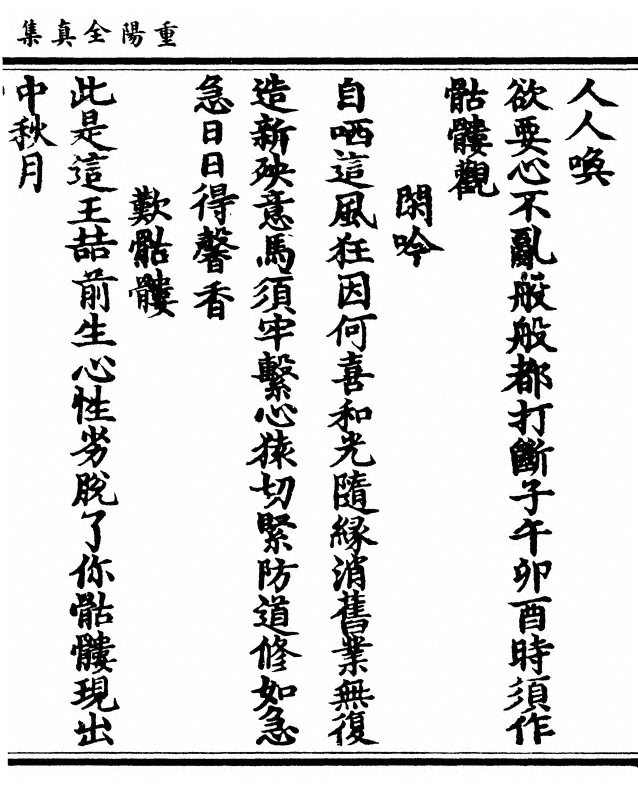 重陽全真集
人人喚
欲要心不亂般般都打斷子午卯酉時須作
骷髏觀
閑吟
自哂這風狂因何喜和光隨緣消舊業無復
造新殃意馬須牢繫心猿切緊防道修如急
急日日得馨香
歎骷髏
此是這王喆前生心性劣脫了你骷髏現出
中秋月